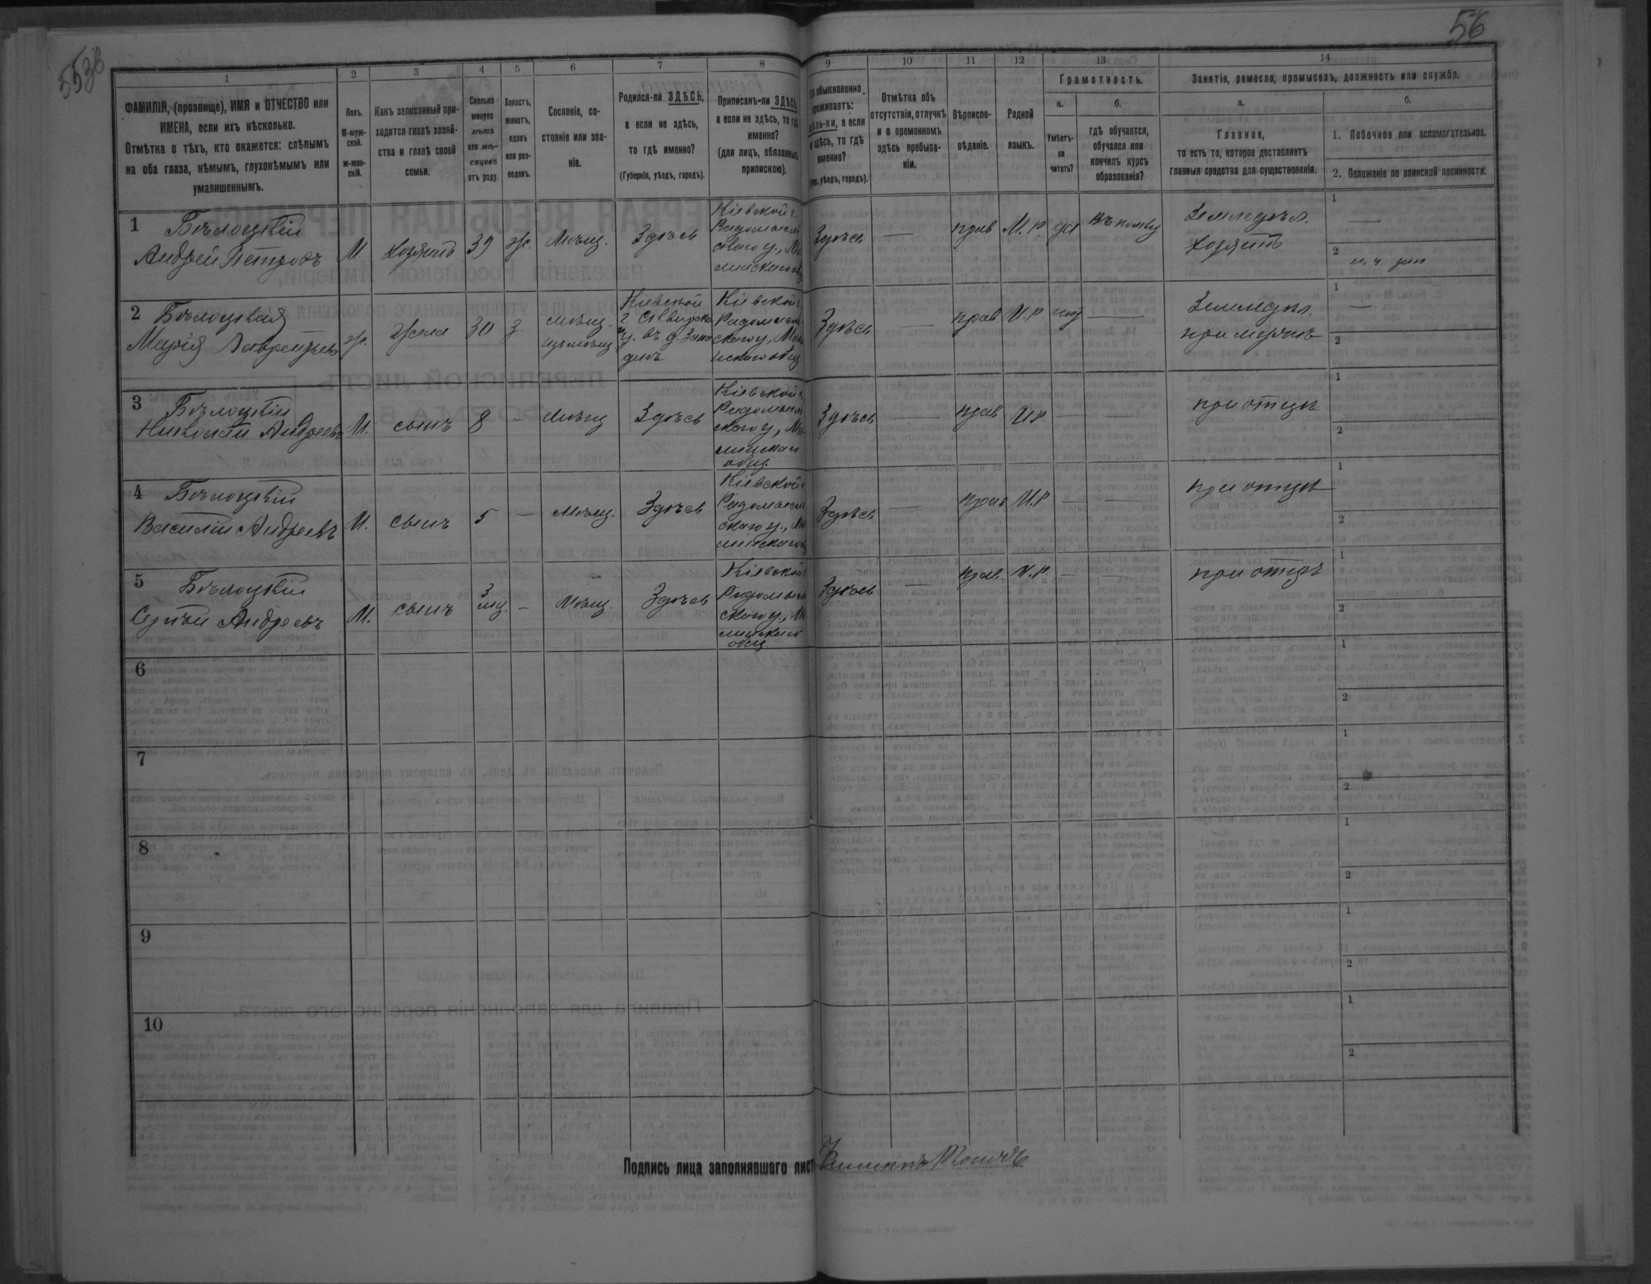 553б
56
1
2
3
4
5
6
7
8
9
10
11
12
13
14
ФАМИЛІЯ, (прозвище), ИМЯ и ОТЧЕСТВО или
ИМЕНА, если ихъ нѣсколько.
Отмѣтка о тѣхъ, кто окажется: слѣпымъ
на оба глаза, нѣмымъ, глухонѣмымъ или
умалишеннымъ.
Полъ.
М-муж-
ской.
Ж-жен-
скій.
Какъ записанный при-
ходится главѣ хозяй-
ства и главѣ своей
семьи.
Сколько
минуло
лѣтъ
или мѣ-
сяцевъ
отъ роду.
Холостъ,
женатъ,
вдовъ
или раз-
веденъ.
Сословіе, со-
стояніе или зва-
ніе.
Родился-ли ЗДѢСЬ,
а если не здѣсь,
то гдѣ именно?
(Губернія, уѣздъ, городъ).
Приписанъ-ли ЗДѢСЬ,
а если не здѣсь, то гдѣ
именно?
(для лицъ, обязанныхъ
припискою).
обыкновенно
проживаетъ:
здѣсь-ли, а если
не здѣсь, то гдѣ
именно?
уѣздъ, городъ).
Отмѣтка объ
отсутствіи, отлучкѣ
и о временномъ
здѣсь пребыва-
ніи.
Вѣроиспо-
вѣданіе.
Родной
языкъ.
Грамотность.
а.
б.
Умѣетъ-
ли
читать?
гдѣ обучается,
обучался или
кончилъ курсъ
образованія?
Занятіе, ремесло, промыселъ, должность или служба.
а.
б.
Главное,
то есть то, которое доставляетъ
главныя средства для существованія.
1. Побочное или вспомогательное.
2. Положеніе по воинской повинности.
1 Бѣлоцкій
Андрей Петровъ
М
хозяинъ
39
ж.
Мѣщ.
Здѣсь
Кіевской г.
Радомысль
скаго у., Ма
линскаго об
Здѣсь
—
прав
М.Р
Земледѣл.
хозяинъ
1 —
2
2 Бѣлоцкая
Марія Лаврентьева
ж.
жена
30
з
Кіевской
г. Сквирска
Кіевской г.
Радомысль
скаго у., Ма
Здѣсь
—
прав
М.Р
—
Земледѣл.
при мужѣ
1 —
2
3 Бѣлоцкій
Николай Андреевъ
М.
сынъ
8
—
Мѣщ
Здѣсь
Кіевской г.
Радомысль
скаго у., Ма
общ.
Здѣсь
—
прав
М.Р
—
—
при отцѣ
1
2
4 Бѣлоцкій
Василій Андреевъ
М.
сынъ
5
—
Мѣщ.
Здѣсь
Кіевской г.
Радомысль
скаго у., Ма
линскаго
Здѣсь
—
прав
М.Р
—
—
при отцѣ
1
2
5 Бѣлоцкій
Сергѣй Андреевъ
М.
сынъ
3
мц.
—
Мѣщ.
Здѣсь
Кіевской
Радомысль
скаго у., Ма
общ
Здѣсь
—
прав.
М.Р
—
—
при отцѣ
1
2
6
1
2
7
1
2
8
1
2
9
1
2
10
1
2
Подпись лица заполнявшаго лист